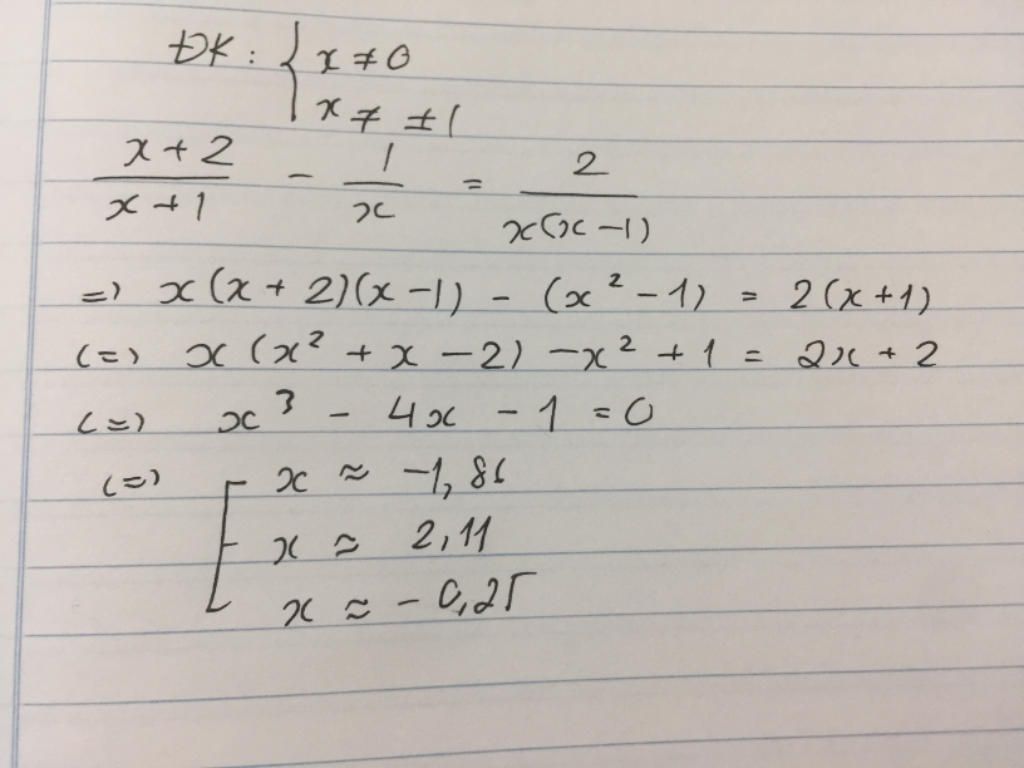 ĐK: { x ≠ 0
x ≠ ±1
(x + 2)/(x + 1) - 1/x = 2/(x(x - 1))
=> x(x + 2)(x - 1) - (x² - 1) = 2(x + 1)
(=) x(x² + x - 2) - x² + 1 = 2x + 2
(=) x³ - 4x - 1 = 0
(=) [ x ≈ -1,86
x ≈ 2,11
x ≈ -0,25